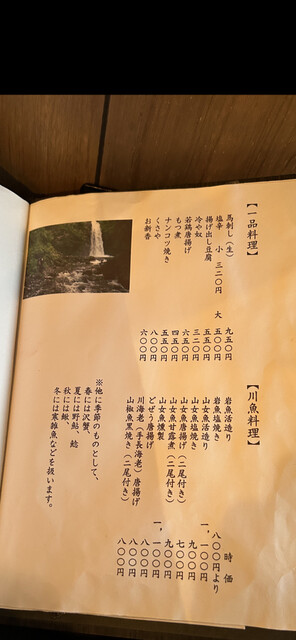 【一品料理】
馬刺し（生） 九五〇円
塩辛 小 三二〇円 大 五〇〇円
揚げ出し豆腐 五五〇円
冷や奴 三二〇円
若鶏唐揚げ 六五〇円
もつ煮 四五〇円
ナンコツ焼き 五五〇円
くさや 八〇〇円
お新香 六〇〇円
【川魚料理】
岩魚活造り 時価
岩魚塩焼き 八〇〇円より
山女魚活造り 一，一〇〇円
山女魚塩焼き 九〇〇円
山女魚唐揚げ（二尾付き） 七〇〇円
山女魚甘露煮（二尾付き） 九〇〇円
山女魚燻製 一，一〇〇円
どぜう唐揚げ 八〇〇円
川海老（手長海老）唐揚げ 八〇〇円
山椒魚黒焼き（二尾付き） 八〇〇円
※他に季節のものとして、
春には沢蟹、
夏には野鮎、鯰
秋には鰍、
冬には寒雑魚などを扱います。